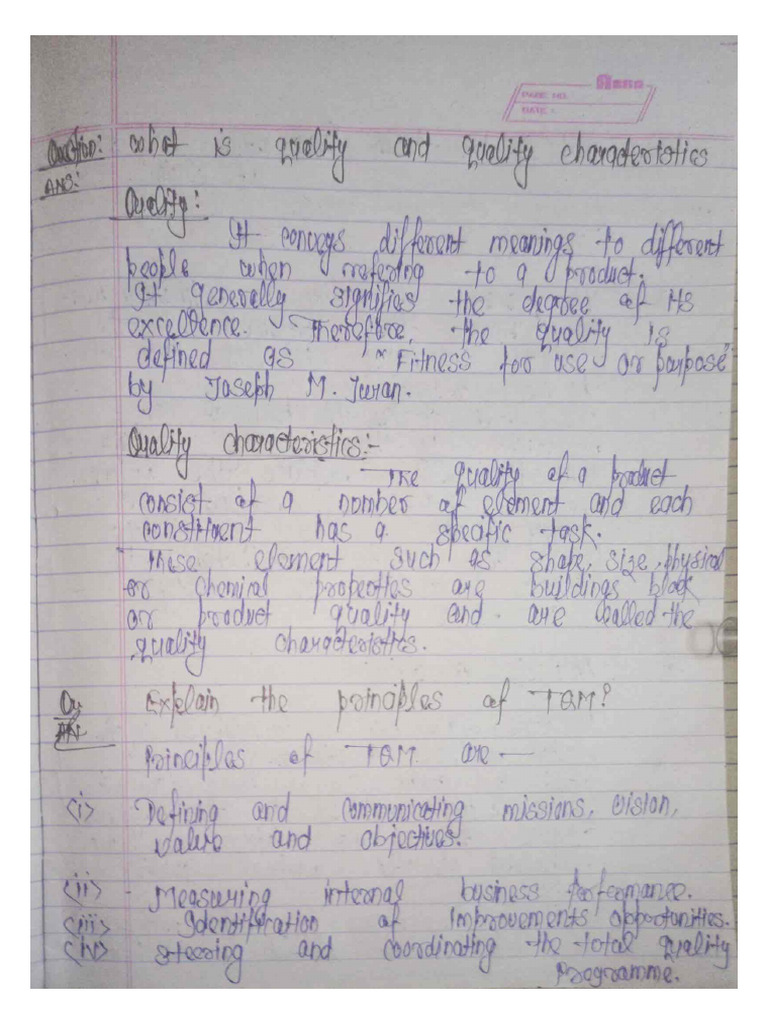 PAGE NO.
DATE :
Question: what is quality and quality characteristics
ANS:
Quality:
It conveys different meanings to different
people when refering to a product.
It generally signifies the degree of its
excellence. Therefore, the quality is
defined as "Fitness for use or purpose"
by Joseph M. Juran.
Quality characteristics:-
The quality of a product
consist of a number of element and each
constituent has a specific task.
These element such as shape, size, physical
or chemical properties are buildings block
or product quality and are called the
quality characteristics.
Qu Explain the principles of TQM?
AN
Principles of TQM are —
<i> Defining and communicating missions, vision,
value and objectives.
<ii> Measuring internal business performance.
<iii> Identification of improvements opportunities.
<iv> steering and coordinating the total quality
programme.